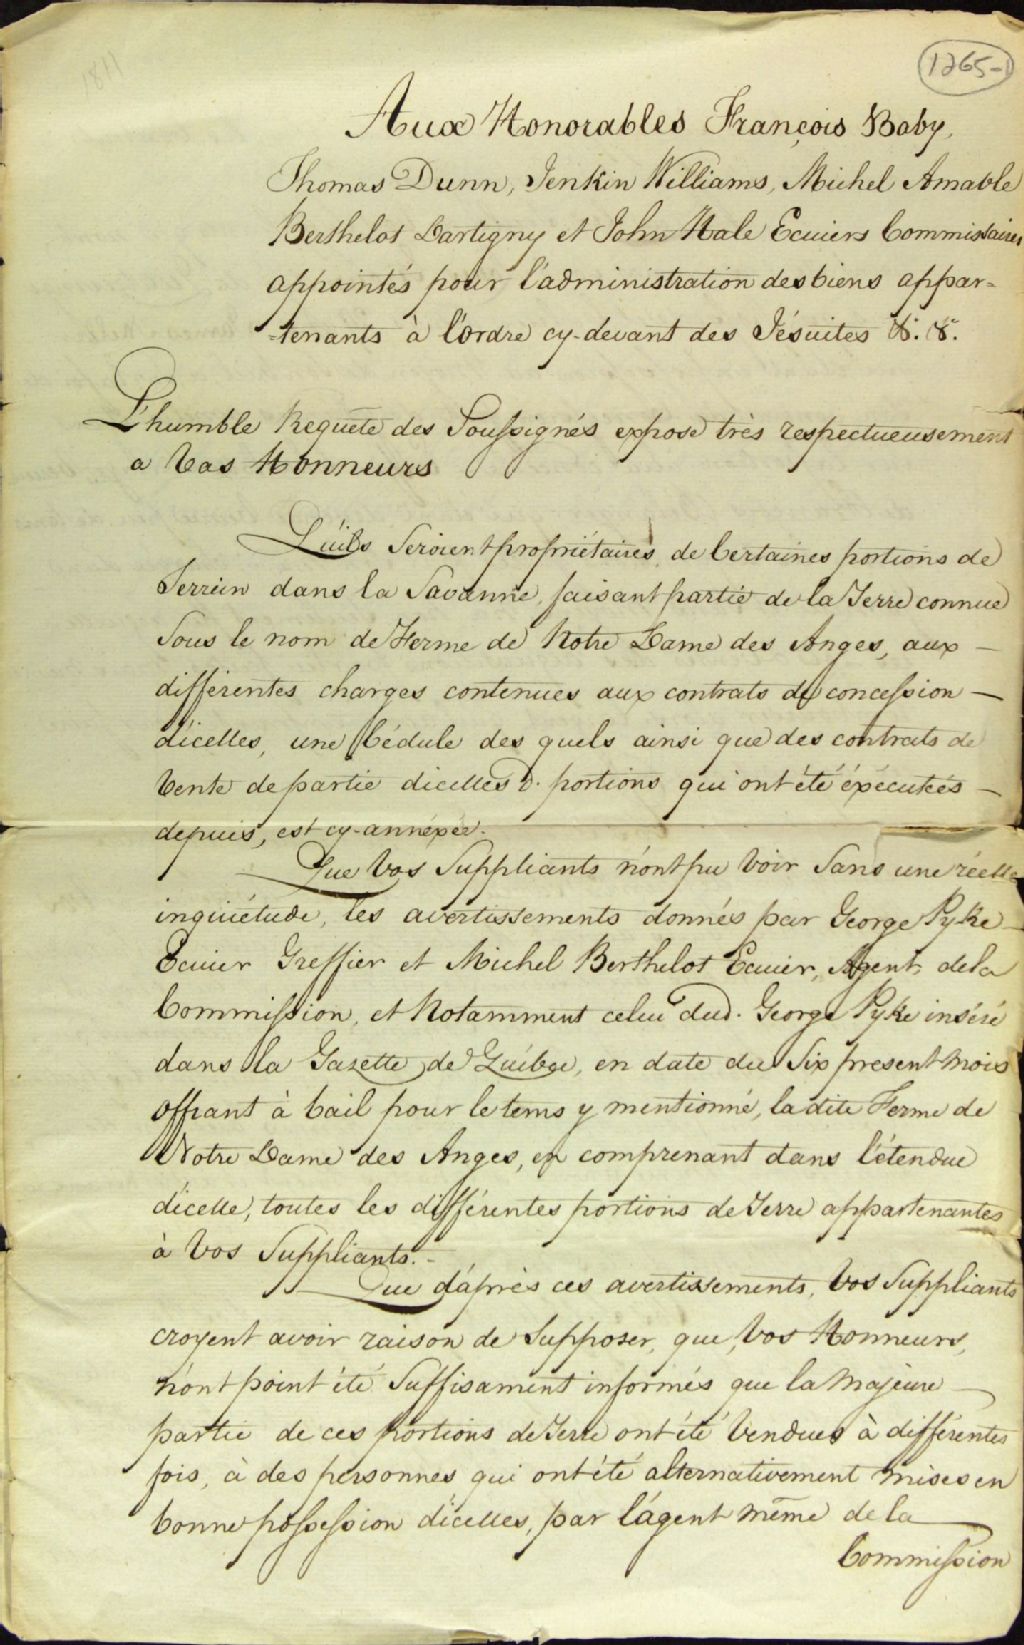 1265-1
1811
Aux Honorables François Baby,
Thomas Dunn, Jenkin Williams, Michel Amable
Berthelot Dartigny et John Hale Ecuiers Commissaires
appointés pour l'administration des biens appar=
=tenants à l'ordre cy-devant des Jésuites &. &.
L'humble Requête des Soussignés expose très respectueusement
a Vos Honneurs
Qu'ils Seroient propriétaires de Certaines portions de
Terrein dans la Savanne, faisant partie de la Terre connue
Sous le nom de Ferme de Notre Dame des Anges, aux —
différentes charges contenues aux contrats de concession —
d'icelles, une Cédule des quels ainsi que des contrats de
Vente de partie d'icelles d. portions qui ont été éxécutées —
depuis, est cy-annéxée.
Que Vos Suppliants n'ont pu Voir Sans une réelle
inquiétude, les avertissements donnés par George Pyke
Ecuier Greffier et Michel Berthelot Ecuier, Agent de la
Commission, et Notamment celui dud. George Pyke inséré
dans la Gazette de Québec, en date du Six present mois
offrant à bail pour le tems y mentionné, la dite Ferme de
Notre Dame des Anges, en comprenant dans l'étendue
d'icelle, toutes les différentes portions de Terre appartenantes
à Vos Suppliants.-
Que d'après ces avertissements, Vos Suppliants
croyent avoir raison de Supposer, que, Vos Honneurs,
n'ont point été Suffisament informés que la Majeure —
partie de ces portions de Terre ont été Vendues à différentes
fois, à des personnes qui ont été alternativement mises en
bonne possession d'icelles, par l'agent même de la
Commission